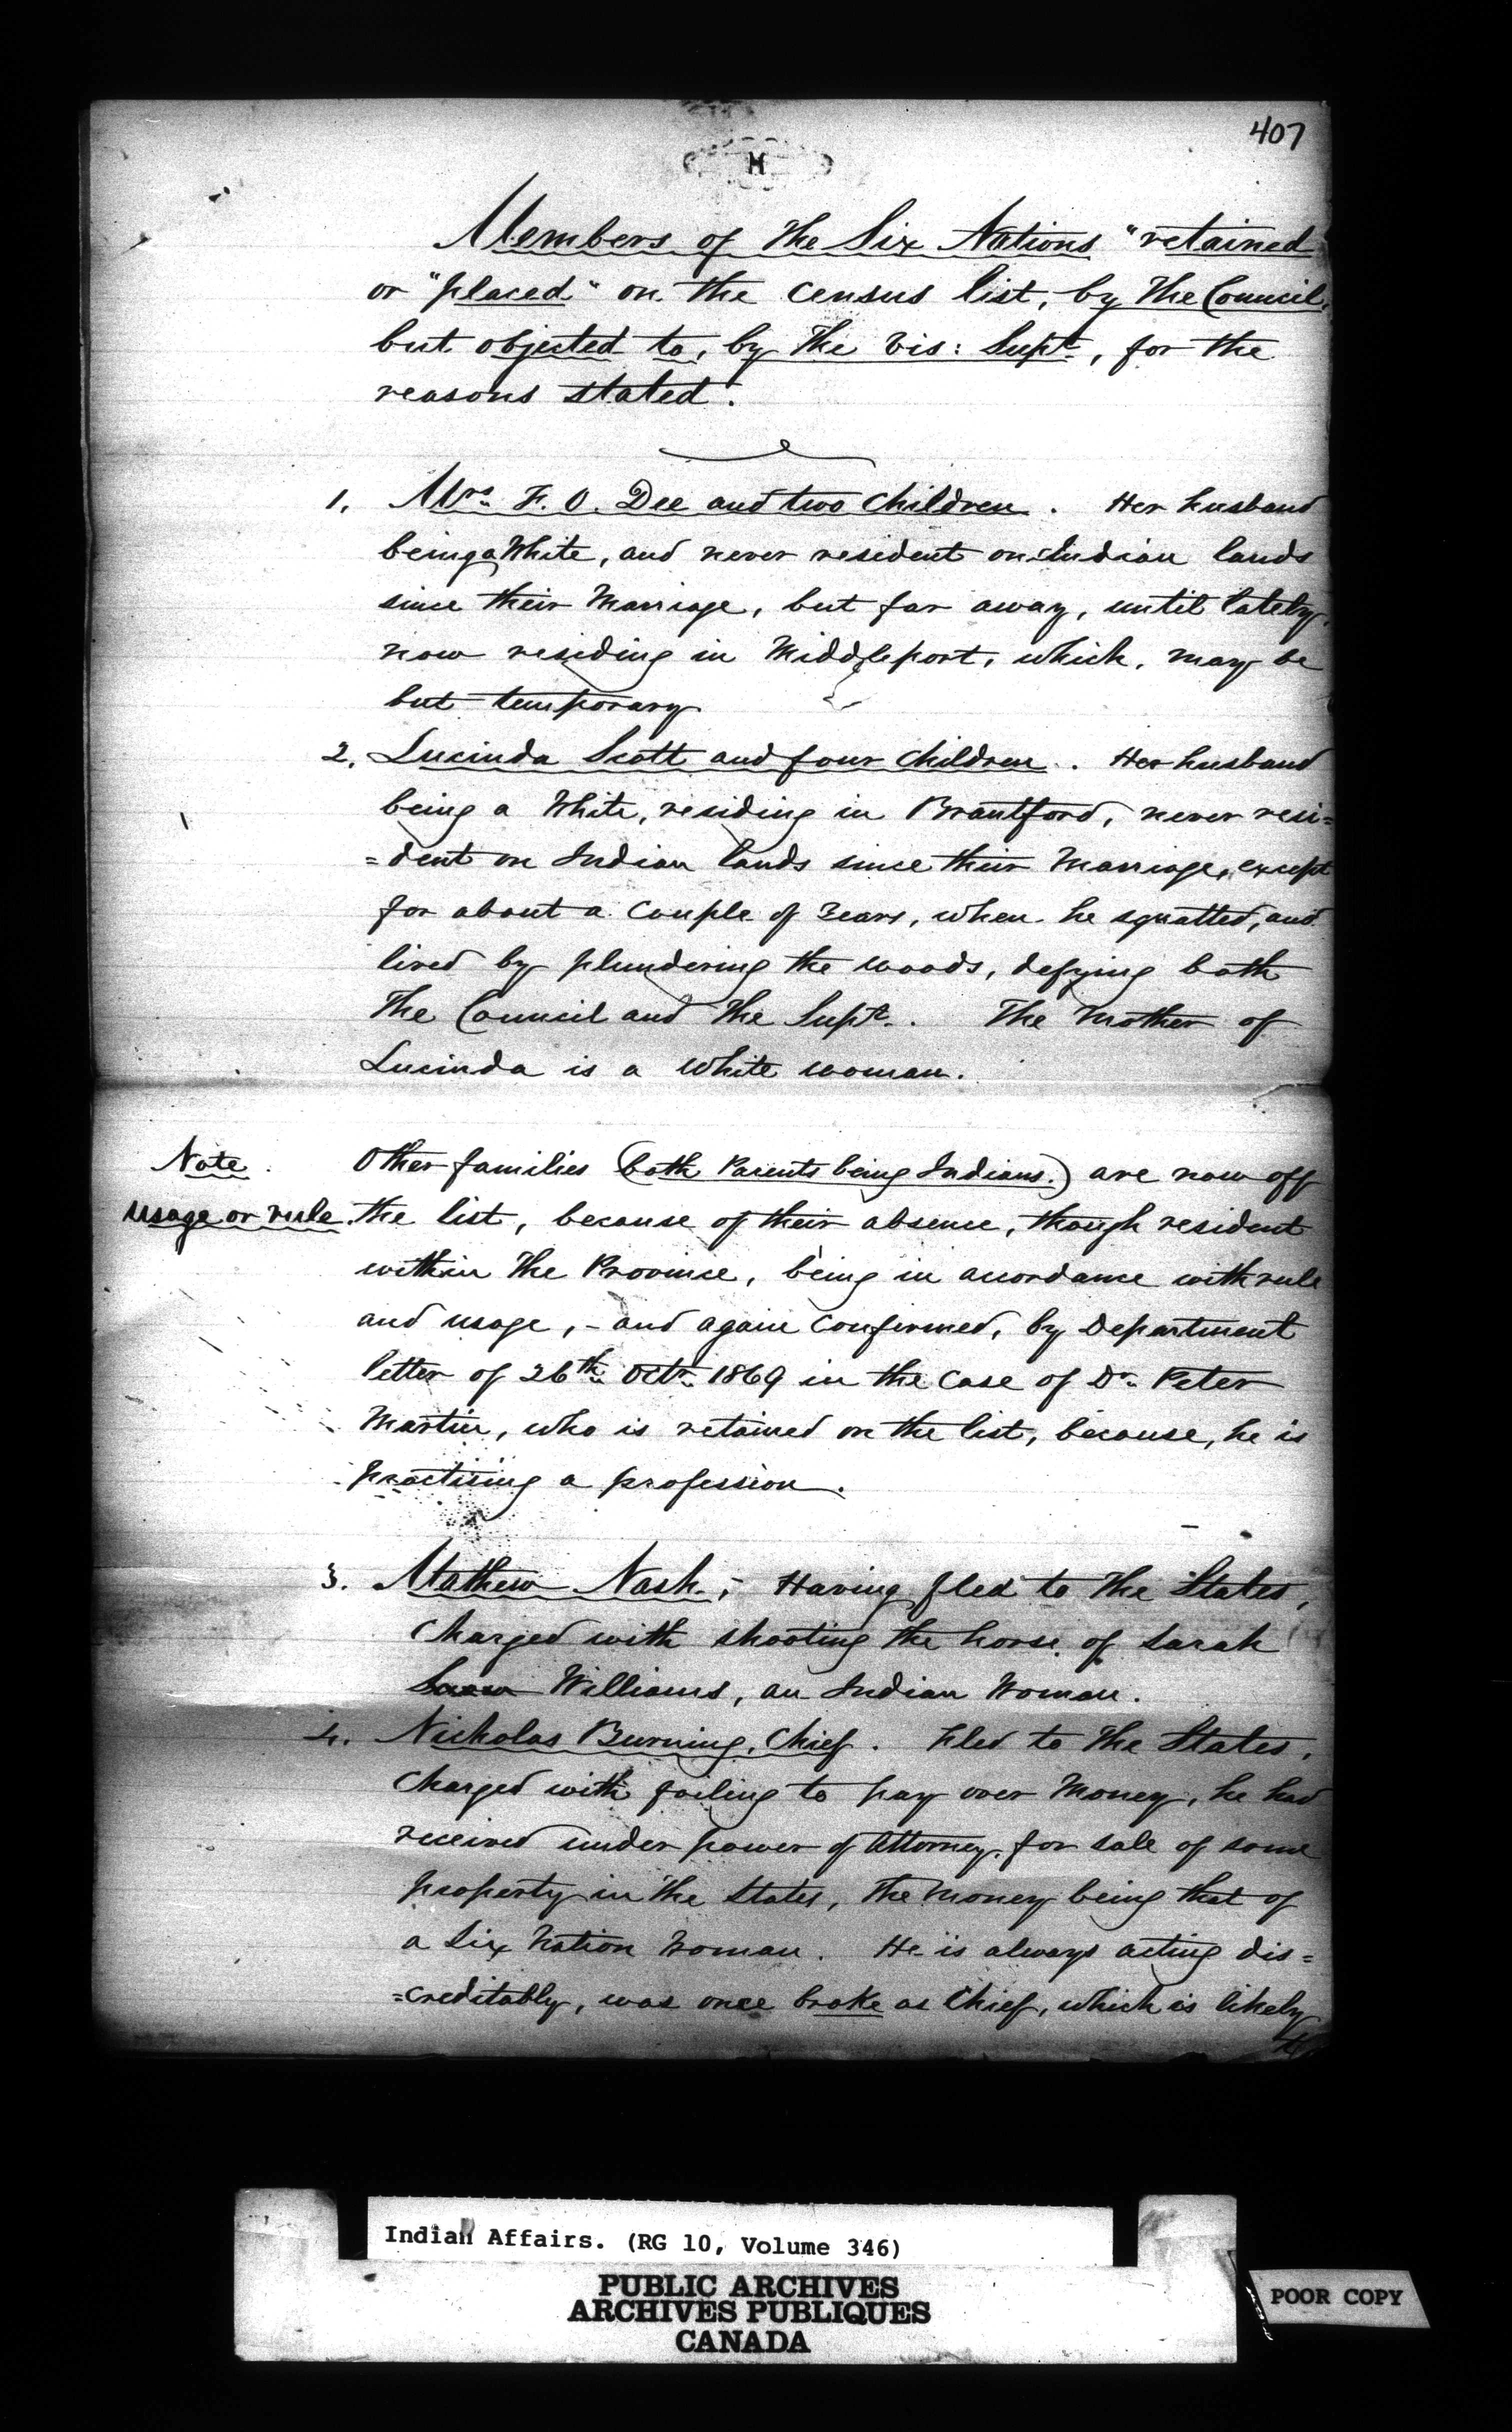 407
H
Members of The Six Nations "retained
or "placed" on the census list, by The Council,
but objected to, by The Vis: Supt, for the
reasons stated.
1. Mrs. F. O. Dee and two Children. Her husband
being a White, and never resident on Indian lands
since their Marriage, but far away, until lately,
now residing in Middleport, which, may be
but temporary
2. Lucinda Scott and four Children. Her husband
being a White, residing in Brantford, never resi=
=dent on Indian lands since their Marriage, except
for about a Couple of Years, when he squatted, and
lived by plundering the woods, defying both
The Council and The Supt. The Mother of
Lucinda is a White woman.
Note. Other families (both Parents being Indians.) are now off
usage or rule. the list, because of their absence, though resident
within The Province, being in accordance with rule
and usage, - and again Confirmed, by Department
letter of 26th Octr 1869 in the Case of Dr. Peter
Martin, who is retained on the list, because, he is
practising a profession.
3. Mathew Nash, - Having fled to The States,
Charged with shooting the horse of Sarah
Williams, an Indian Woman.
4. Nicholas Burning, Chief. Fled to The States,
Charged with failing to pay over Money, he had
received under power of Attorney, for sale of some
property in The States, The Money being that of
a Six Nation Woman. He is always acting dis=
=creditably, was once broke as Chief, which is likely
Indian Affairs. (RG 10, Volume 346)
PUBLIC ARCHIVES
ARCHIVES PUBLIQUES
CANADA
POOR COPY